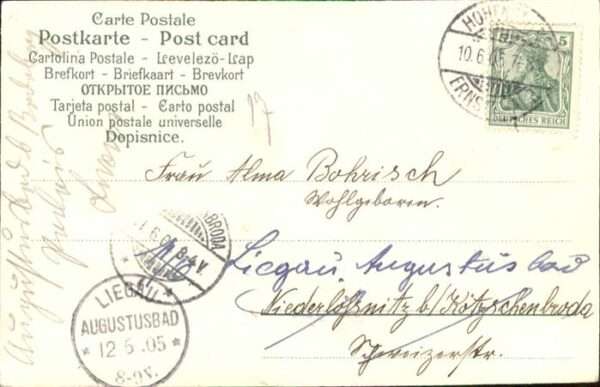 Carte Postale
Postkarte - Post card
Cartolina Postale - Levelezö-Lap
Brefkort - Briefkaart - Brevkort
ОТКРЫТОЕ ПИСЬМО
Tarjeta postal - Carto postal
Union postale universelle
Dopisnice.
17
HOHEN
10.6.05.
ERNST
5
DEUTSCHES REICH
Frau Alma Bohrisch
Wohlgeboren.
BRODA
8-9V.
Liegau Augustusbad
Niederlößnitz b/Kötzschenbroda
Schweizerstr.
LIEGAU
AUGUSTUSBAD
* 12 6 05 *
8-9V.
Augustusbad b Radeberg